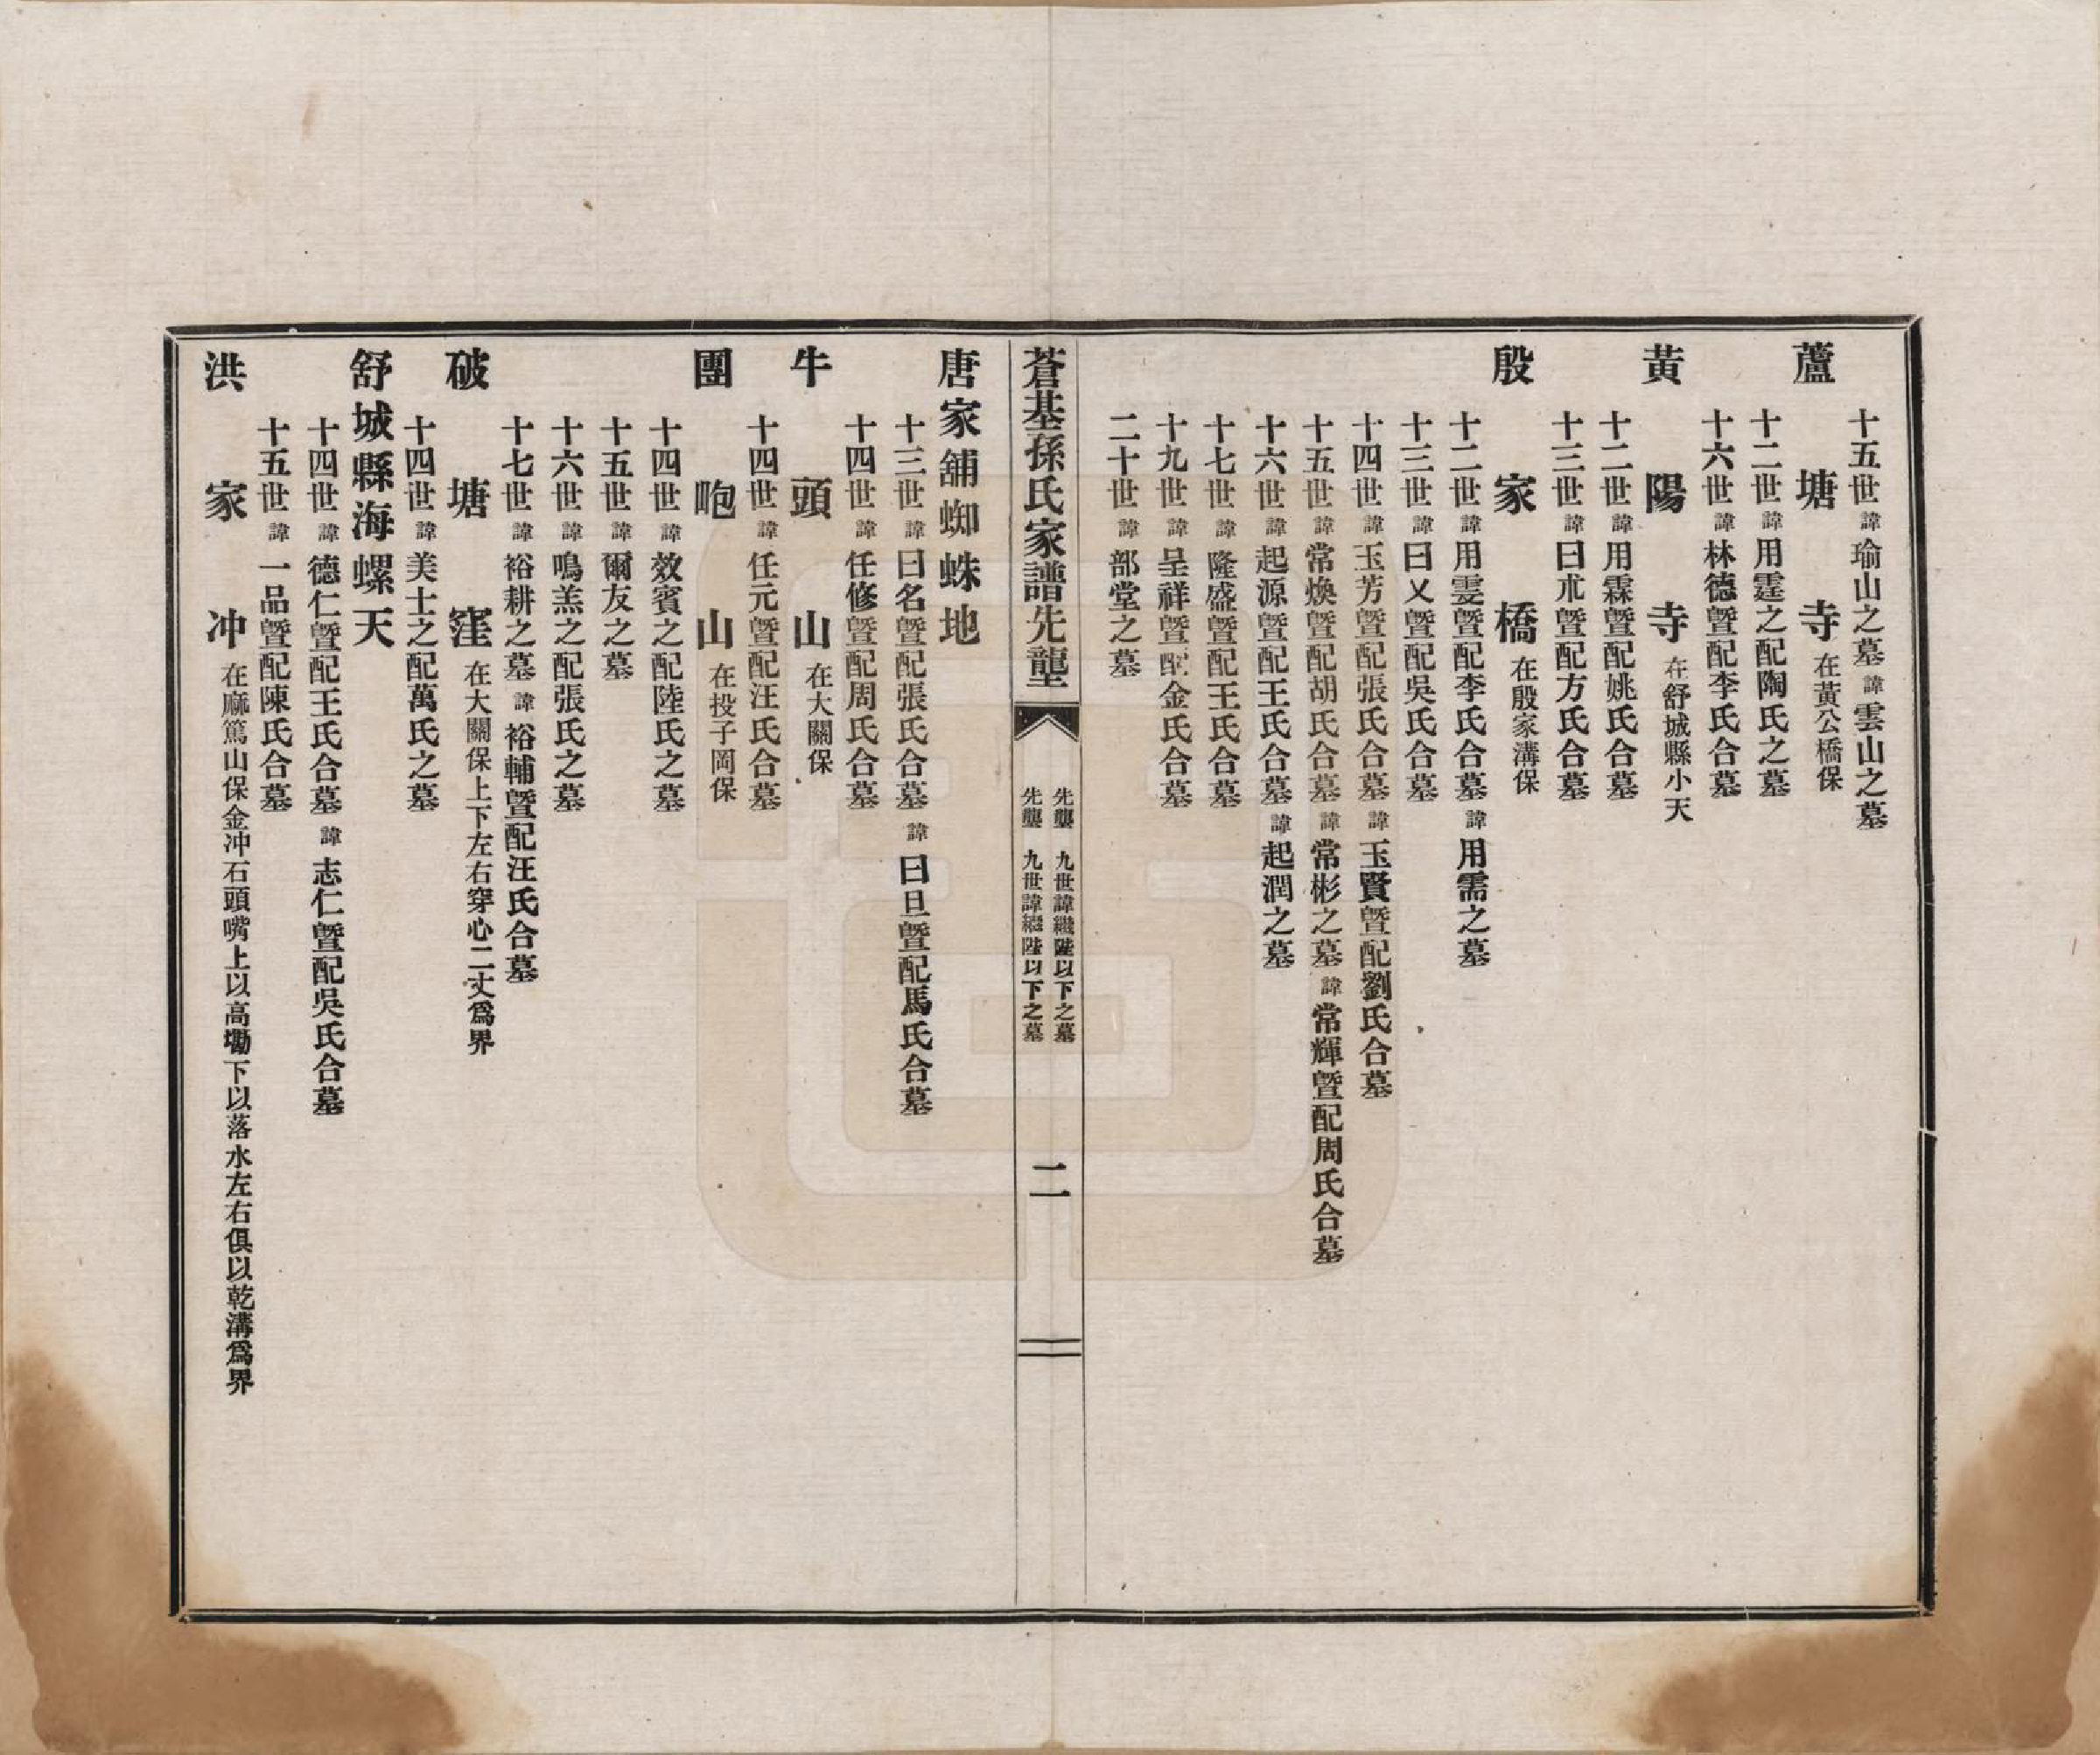 十五世諱瑜山之墓諱雲山之墓
蘆塘寺在黃公橋保
十二世諱用霆之配陶氏之墓
十六世諱林德曁配李氏合墓
黃陽寺在舒城縣小天
十二世諱用霖曁配姚氏合墓
十三世諱曰朮曁配方氏合墓
殷家橋在殷家溝保
十二世諱用雯曁配李氏合墓諱用需之墓
十三世諱曰乂曁配吳氏合墓
十四世諱玉芳曁配張氏合墓諱玉賢曁配劉氏合墓
十五世諱常煥曁配胡氏合墓諱常彬之墓諱常輝曁配周氏合墓
十六世諱起源曁配王氏合墓諱起潤之墓
十七世諱隆盛曁配王氏合墓
十九世諱呈祥曁配金氏合墓
二十世諱部堂之墓
蒼基孫氏家譜先壟
先壟 九世諱繼陞以下之墓
先壟 九世諱繼陞以下之墓
二
唐家舖蜘蛛地
十三世諱曰名曁配張氏合墓諱曰旦曁配馬氏合墓
十四世諱任修曁配周氏合墓
牛頭山在大關保
十四世諱任元曁配汪氏合墓
團皰山在投子岡保
十四世諱效賓之配陸氏之墓
十五世諱爾友之墓
十六世諱鳴羔之配張氏之墓
十七世諱裕耕之墓諱裕輔曁配汪氏合墓
破塘窪在大關保上下左右穿心二丈爲界
十四世諱美士之配萬氏之墓
舒城縣海螺天
十四世諱德仁曁配王氏合墓諱志仁曁配吳氏合墓
十五世諱一品曁配陳氏合墓
洪家冲在麻篤山保金冲石頭嘴上以高墈下以落水左右俱以乾溝爲界